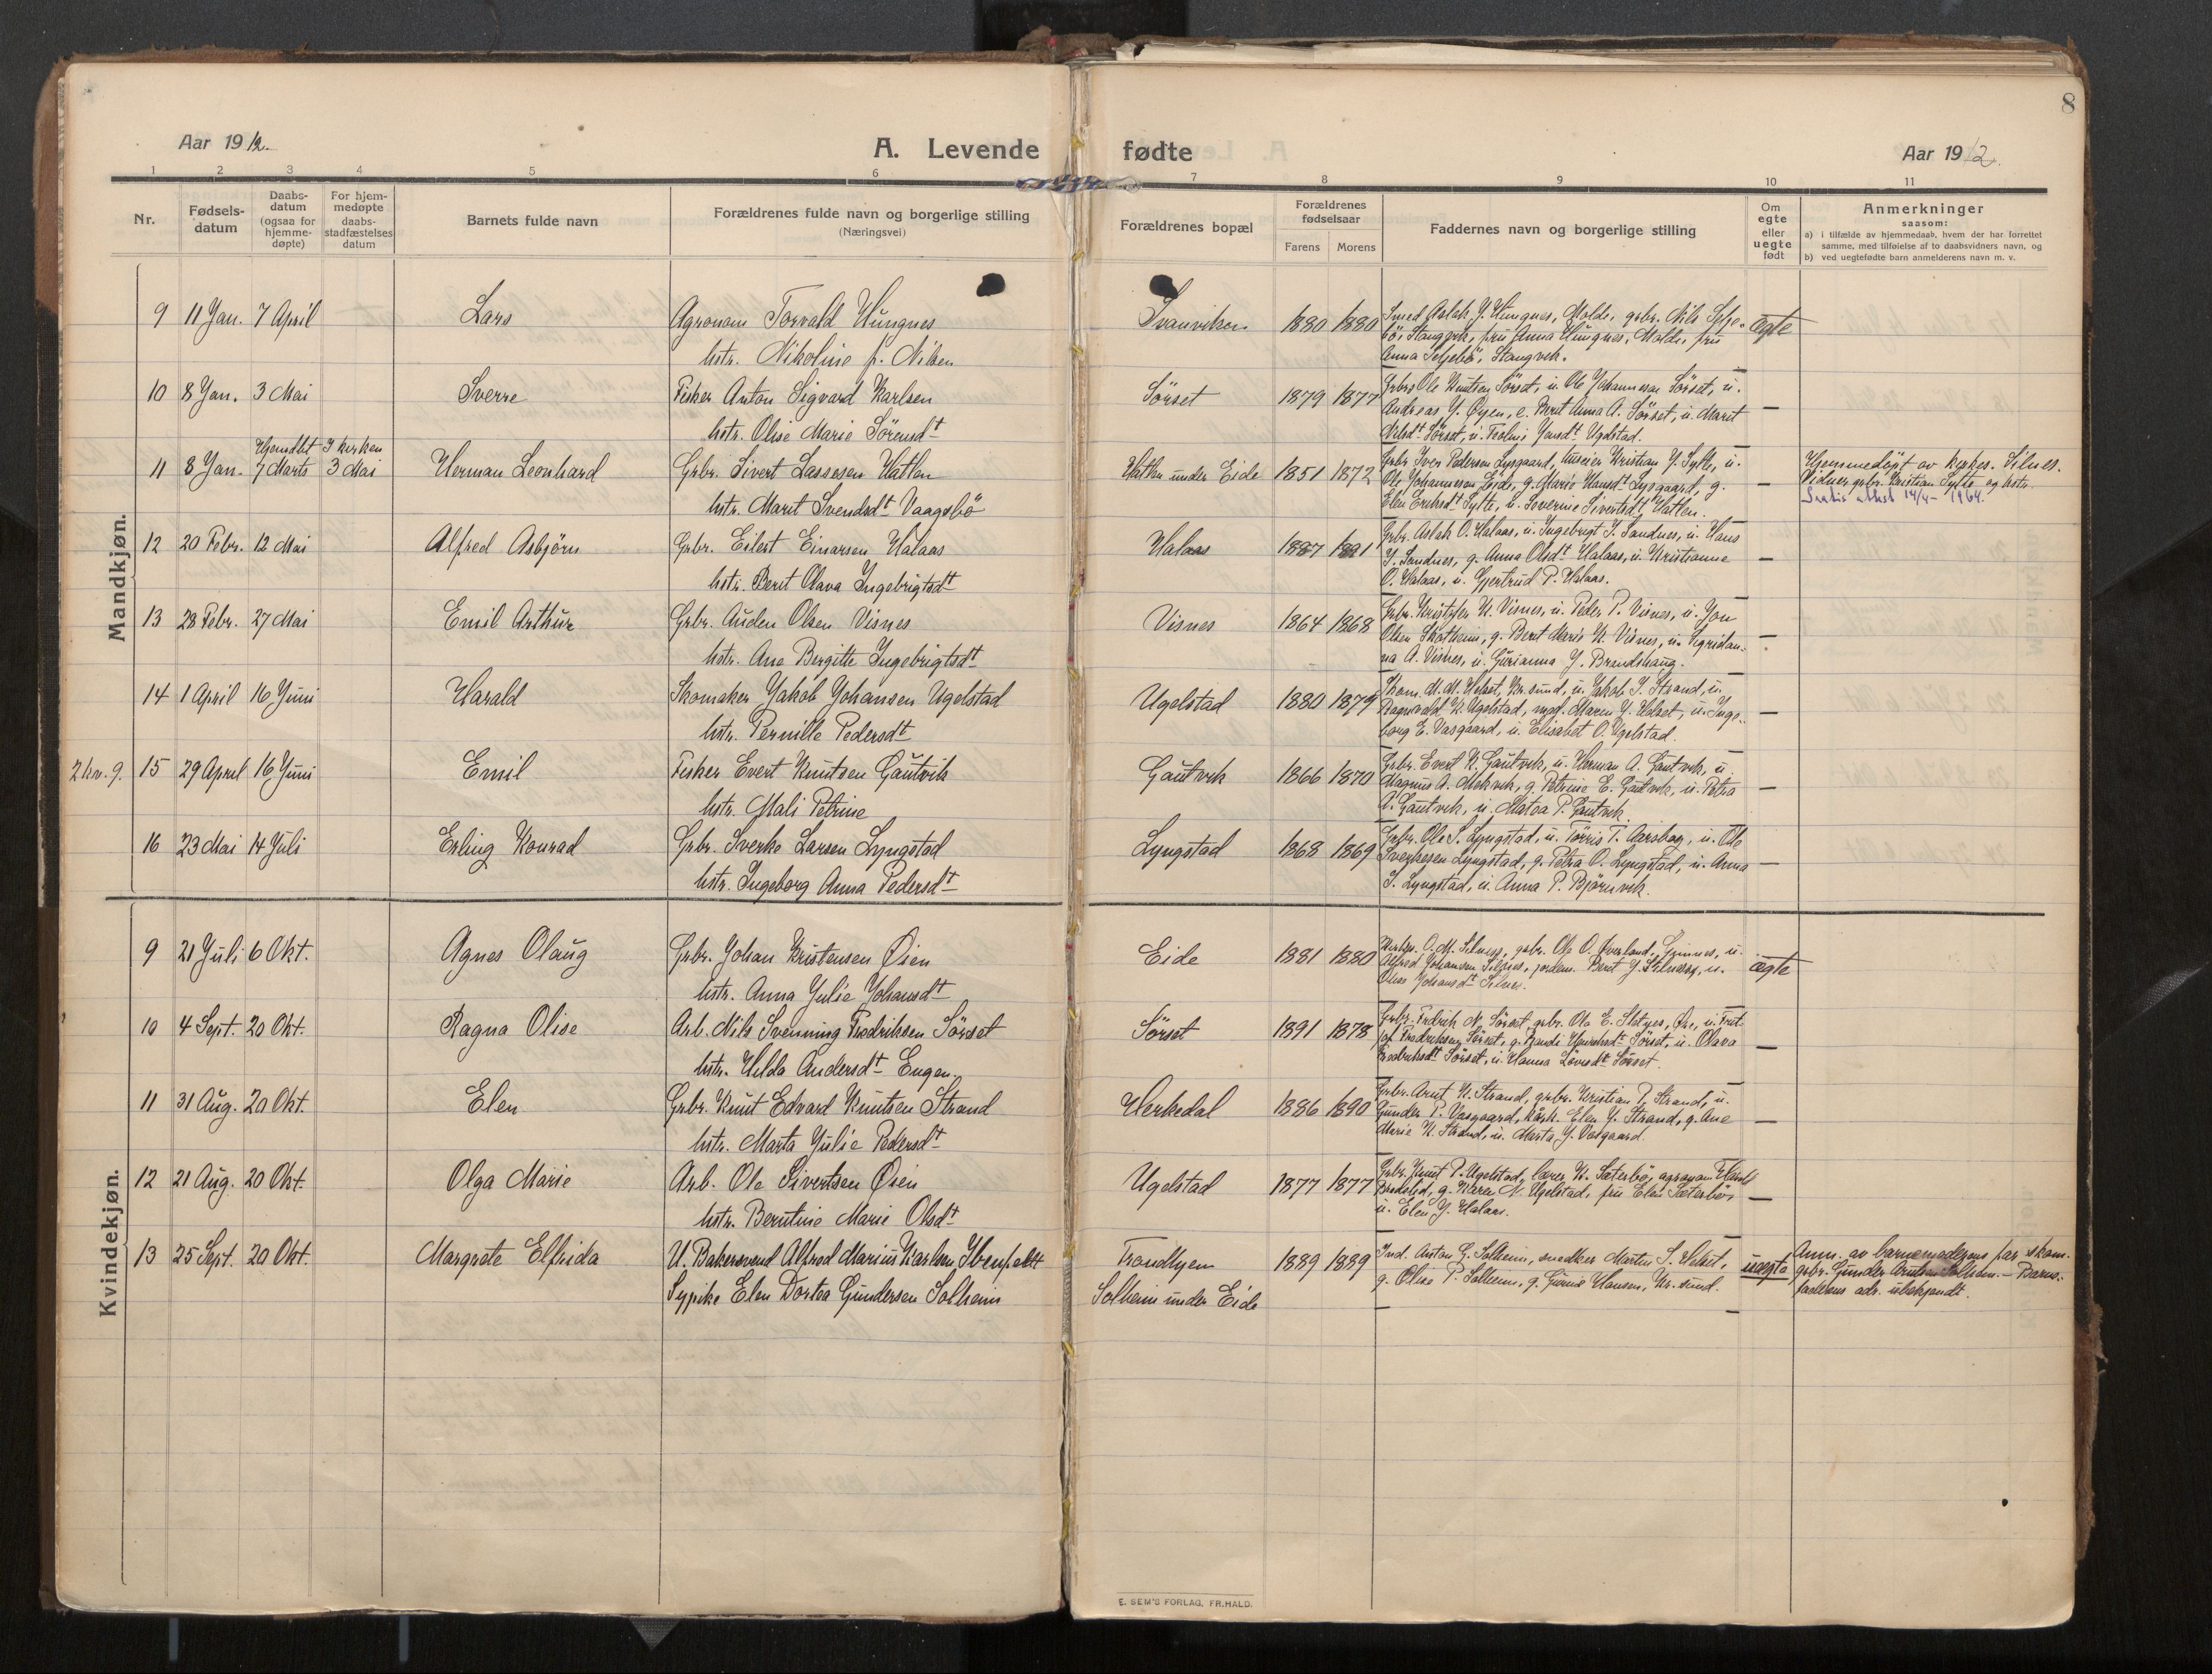 8
Aar 1912.
A. Levende fødte
Aar 1912.
1 2 3 4 5 6 7 8 9 10 11
Nr.
Fødsels-
datum
Daabs-
datum
(ogsaa for
hjemme-
døpte)
For hjem-
medøpte
daabs-
stadfæstelses
datum
Barnets fulde navn
Forældrenes fulde navn og borgerlige stilling
(Næringsvei)
Forældrenes bopæl
Forældrenes
fødselsaar
Farens Morens
Faddernes navn og borgerlige stilling
Om
egte
eller
uegte
født
Anmerkninger
saasom:
a) i tilfælde av hjemmedaab, hvem der har forrettet
samme, med tilføielse af to daabsvidners navn, og
b) ved uegtefødte barn anmelderens navn m. v.
Mandkjøn.
9 11 Jan. 7 April — Lars
Agronom Torvald Hungnes
hstr. Nikoline f. Nilsen
Svanviken 1880 1880
Smed Aslak J. Hungnes, Molde, gbr. Nils Selje-
bö, Stangvik, frü Anna Hungnes, Molde, frü
Anna Seljebö, Stangvik.
ægte
10 8 Jan. 3 Mai Sverre
Fisker Anton Sigvard Karlsen
hstr. Olise Marie Sörensdt
Sörset 1879 1877
Gbrs Ole Knutsen Sörset, u. Ole Johannesen Sörset, u.
Andreas J. Øyen, e. Berit Anna A. Sörset, u. Marit
Nilsdt Sörset, u. Jansdt Ugelstad.
—
11 8 Jan. Hjemdbt 7 Marts I kirken 3 Mai Herman Leonhard
Grbr. Sivert Lassesen Hatlen
hstr. Marit Svendsdt Vaagsbö
Hatlen under Eide 1851 1872
Grbr. Iver Pedersen Lysgaard, huseier Kristian J. Sylte, u.
Ole Johannesen Eide, g. Marit Hansdt Lysgaard, g.
Elen Eriksdt Sylte, u. Severine Sivertsdt Hatlen.
Hjemmedöpt av kirkes. Silnes.
Vidner gbr. Kristian Sylte og hstr.
attest 14/4 - 1964.
12 20 Febr. 12 Mai Alfred Asbjörn
Grbr. Eilert Einarsen Halaas
hstr. Berit Olava Ingebrigtsdt
Halaas 1887 1891
Grbr. Aslak O. Halaas, u. Ingebrigt J. Sandnes, u. Hans
J. Sandnes, g. Anna Olsdt Halaas, u. Kristianne
O. Halaas, u. Gjertrud P. Halaas.
—
13 28 Febr. 27 Mai Emil Arthur
Grbr. Auden Olsen Visnes
hstr. Ane Bergitte Ingebrigtsdt
Visnes 1864 1868
Grbr. Kristofer K. Visnes, u. Peder P. Visnes, u. Jon
Olsen Skotheim, g. Berit Marie K. Visnes, u. Sigridan-
na A. Visnes, u. Gurianna J. Brandshaug.
—
14 1 April 16 Juni Harald
Skomaker Jakob Johansen Ugelstad
hstr. Pernille Pedersdt
Ugelstad 1880 1879
Skom. M. M. Helset, Kr.sund, u. Jakob J. Strand, u.
Ragnvald K. Ugelstad, Maren J. Helset, u. Inge-
borg E. Vasgaard, u. Elisabet O. Ugelstad.
—
2 kv. 9. 15 29 April 16 Juni Emil
Fisker Evert Knutsen Gautvik
hstr. Mali Petrine
Gautvik 1866 1870
Grbr. Evert K. Gautvik, u. Herman A. Gautvik, u.
Magnus A. Mekvik, g. Petrine E. Gautvik, u. Petra
A. Gautvik, u. Matea P. Gautvik.
—
16 23 Mai 14 Juli Erling Konrad
Grbr. Sverke Larsen Lyngstad
hstr. Ingeborg Anna Pedersdt
Lyngstad 1868 1869
Grbr. Ole S. Lyngstad, u. Törris T. Aarsbog, u. Ole
Sverkesen Lyngstad, g. Petra O. Lyngstad, u. Anna
S. Lyngstad, u. Anna P. Björnvik.
—
Kvindekjøn.
9 21 Juli 6 Okt. Agnes Olaug
Grbr. Johan Kristensen Øien
hstr. Anna Julie Johansdt
Eide 1881 1880
Kirkes. O. M. Silness, gbr. Ole O. Överland, u.
Alfred Johansen Silnes, jordm. Berit J. Silness, u.
Johansdt Silnes.
ægte
10 4 Sept. 20 Okt. Ragna Olise
Arb. Nils Svenning Fredriksen Sörset
hstr. Hilda Andersdt Eugen
Sörset 1891 1878
Grbr. Fredrik N. Sörset, gbr. Ole E. Øre, u. Frit-
jof Fredriksen Sörset, g. Randi Sörset, u. Olava
Fredriksdt Sörset, u. Hanna Sörset.
—
11 31 Aug. 20 Okt. Elen
Grbr. Knut Edvard Knutsen Strand
hstr. Marta Julie Pedersdt
Herkedal 1886 1890
Grbr. Arnt K. Strand, grbr. Kristian P. Strand, u.
Gunder P. Vasgaard, kårk. Elen J. Strand, g. Ane
Marie K. Strand, u. Marta J. Vasgaard.
—
12 21 Aug. 20 Okt. Olga Marie
Arb. Ole Sivertsen Øien
hstr. Berntine Marie Olsdt
Ugelstad 1877 1877
Grbr. Knut P. Ugelstad, lærer K. Sæterbö, agronom
g. Karen N. Ugelstad, frü Elen Sæterbö,
u. Elen J. Halaas.
—
13 25 Sept. 20 Okt. Margrete Elfrida
U. Bakersvend Alfred Marius Karlsen Ibenfeldt
Sypike Elen Dortea Gundersen Solheim
Trondhjem
Solheim under Eide
1889 1889
Ind. Anton G. Solheim, snedker Martin S. Helset,
g. Olise P. Solheim, g. Hansen, Kr.sund.
uægte
Anm. av barnemoderens far skom.
gbr. Gunder Arntsen Solheim. — Barne-
faderens adr. ubekjendt.
E. SEM'S FORLAG, FR.HALD.